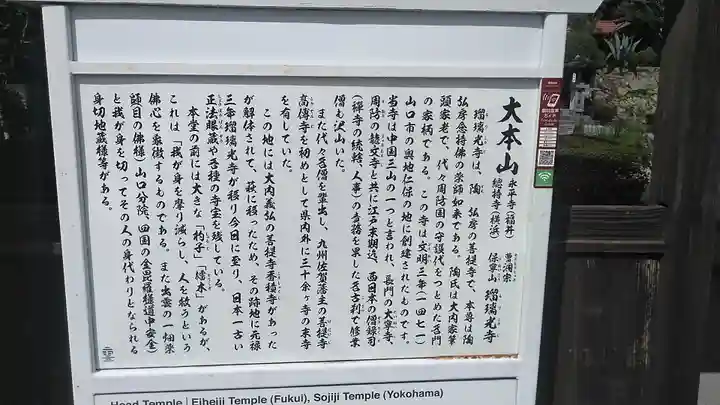 大本山 永平寺（福井）
總持寺（横浜）
曹洞宗
保寧山 瑠璃光寺
瑠璃光寺は、陶 弘房の菩提寺で、本尊は陶
弘房念持佛の薬師如来である。陶氏は大内家筆
頭家老で、代々周防国の守護代をつとめた名門
の家柄である。この寺は文明三年（一四七一）
山口市の奥地仁保の地に創建されたものです。
当寺は中国三山の一つと言われ、長門の大寧寺、
周防の龍文寺と共に江戸末期迄、西日本の僧録司
（禅寺の統轄、人事）の当務を果した名古刹で修業
僧も沢山いた。
また代々名僧を輩出し、九州佐賀藩主の菩提寺
高傳寺を初めとして県内外に三十余ヶ寺の末寺
を有していた。
この地には大内義弘の菩提寺香積寺があった
が解体されて、萩に移ったため、その跡地に元禄
三年瑠璃光寺が移り今日に至り、日本一古い
正法眼蔵や各種の寺宝を残している。
本堂の前には大きな「杓子」「擂木」があるが、
これは「我が身を摩り減らし、人を救うという
佛心を象徴するものである。また出雲の一畑薬
師（目の佛様）山口分院、四国の金毘羅様（道中安全）
と我が身を切ってその人の身代わりとなられる
身切地蔵様等がある。
Head Temple | Eiheiji Temple (Fukui), Sojiji Temple (Yokohama)